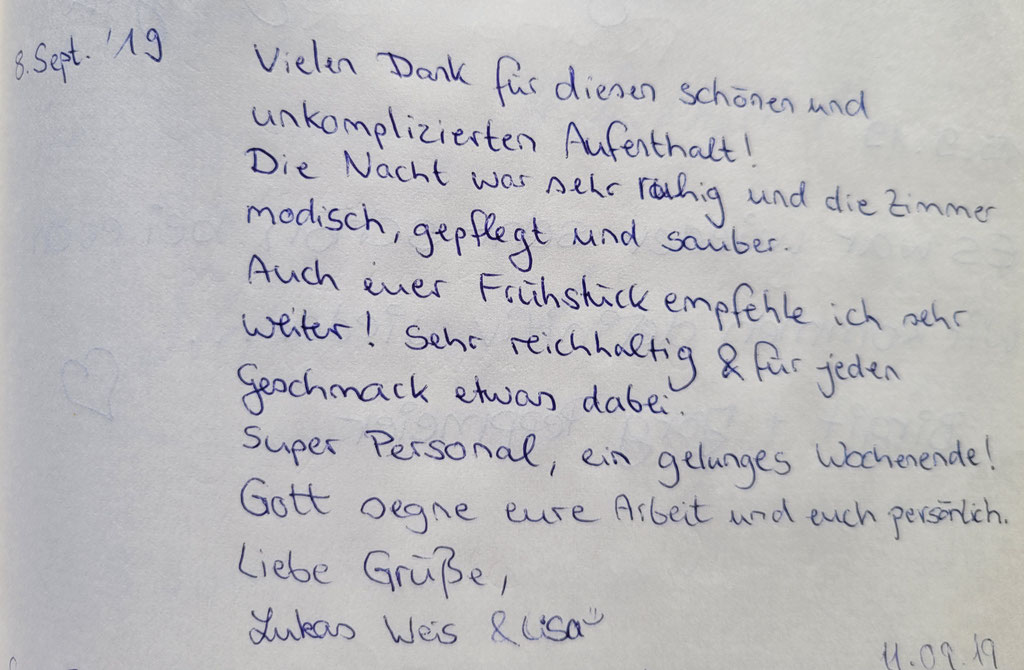 8. Sept. '19
Vielen Dank für diesen schönen und
unkomplizierten Aufenthalt!
Die Nacht war sehr ruhig und die Zimmer
modisch, gepflegt und sauber.
Auch euer Frühstück empfehle ich sehr
weiter! Sehr reichhaltig & für jeden
Geschmack etwas dabei.
Super Personal, ein gelunges Wochenende!
Gott segne eure Arbeit und euch persönlich.
Liebe Grüße,
Lukas Weis & Lisa
11.09.19